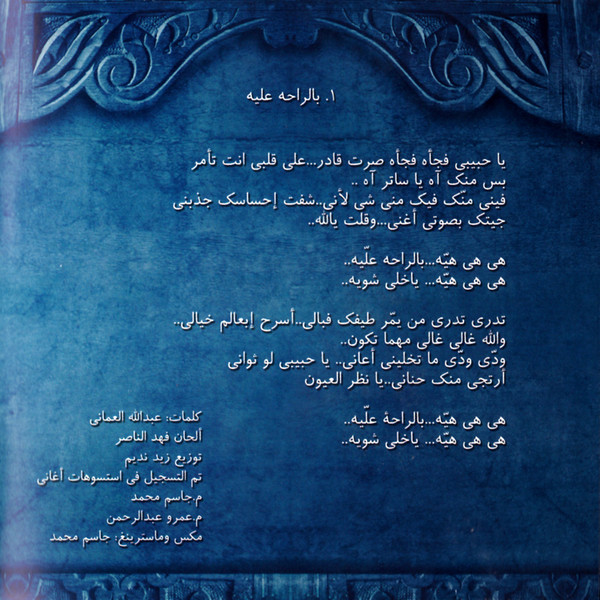 ١. بالراحه عليه
يا حبيبى فجأه فجأه صرت قادر...على قلبى انت تأمر
بس منك آه يا ساتر آه ..
فينى منّك فيك منى شى لأنى..شفت إحساسك جذبنى
جيتك بصوتى أغنى...وقلت يالله..
هى هى هيّه...بالراحه علّيه..
هى هى هيّه... ياخلى شويه..
تدرى تدرى من يمّر طيفك فبالى..أسرح إبعالم خيالى..
والله غالى غالى مهما تكون..
ودّى ودّى ما تخلينى أعانى.. يا حبيبى لو ثوانى
أرتجي منك حنانى..يا نظر العيون
هى هى هيّه...بالراحة علّيه..
هى هى هيّه... ياخلى شويه..
كلمات: عبدالله العمانى
ألحان فهد الناصر
توزيع زيد نديم
تم التسجيل فى استسوهات أغانى
م.جاسم محمد
م.عمرو عبدالرحمن
مكس وماسترينغ: جاسم محمد